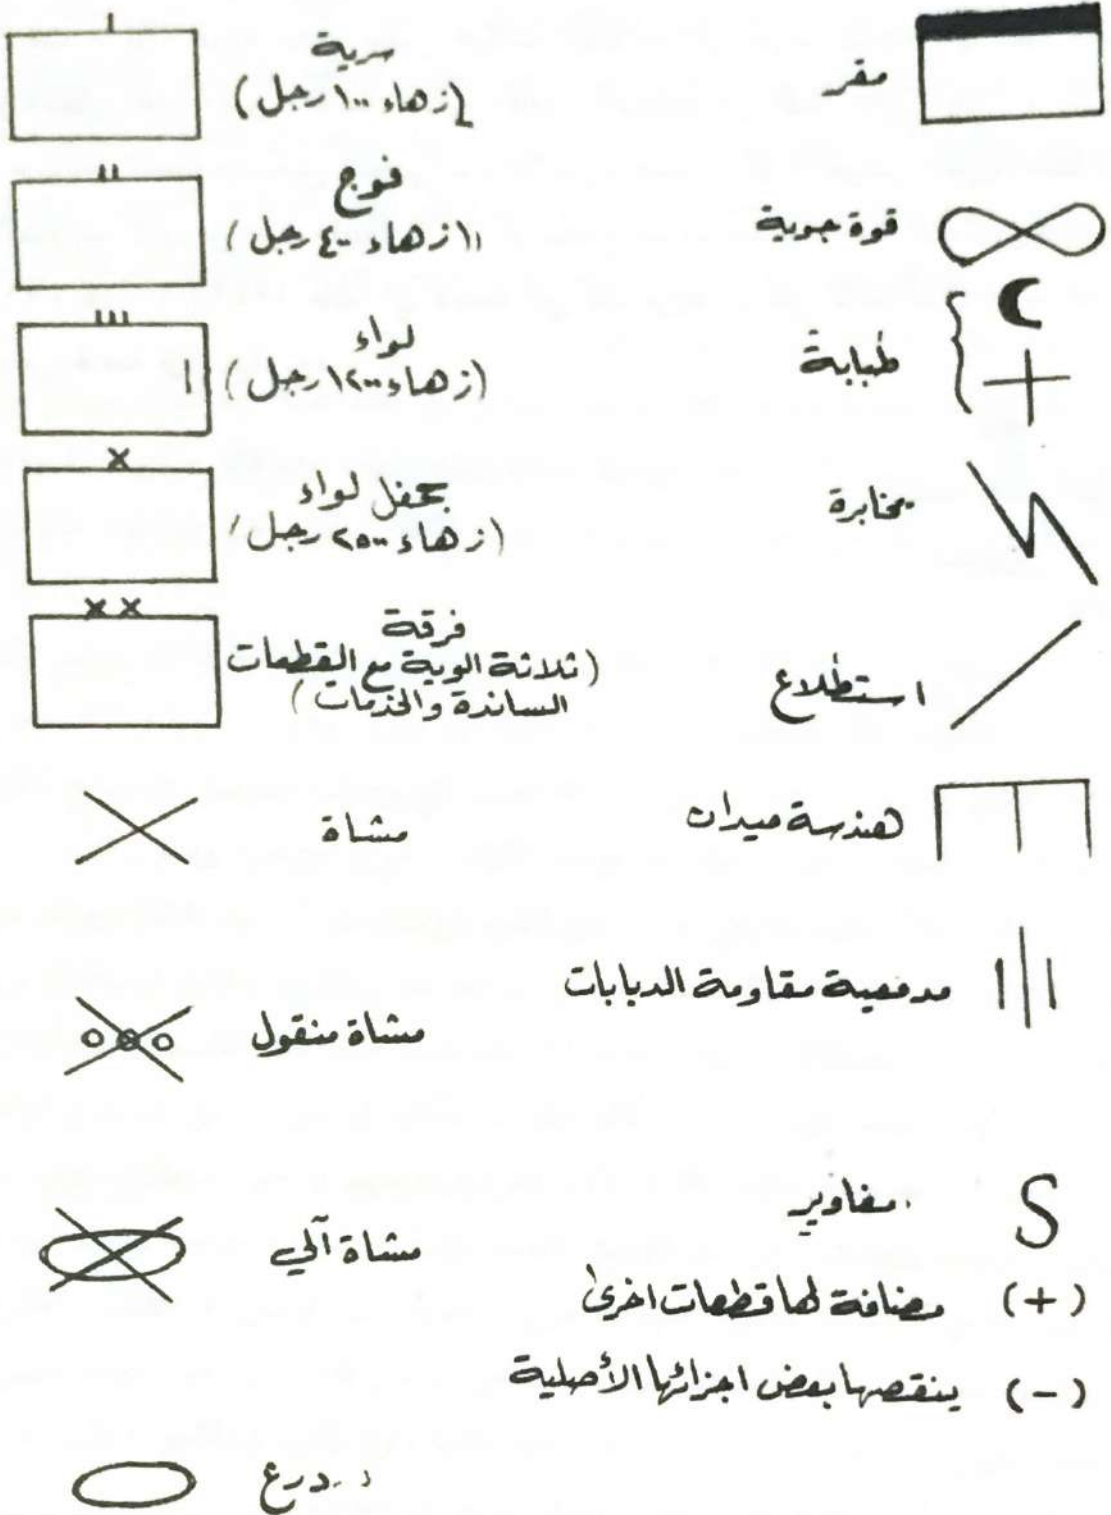 مقر
قوة جوية
طبابة
مخابرة
استطلاع
هندسة ميدان
مدفعية مقاومة الدبابات
S
مغاوير
(+) مضافة لها قطعات اخرى
(-) ينقصها بعض اجزائها الأصلية
سرية
(زهاء ١٠٠ رجل)
فوج
(زهاء ٤٠٠ رجل)
لواء
(زهاء ١٢٠٠ رجل)
جحفل لواء
(زهاء ٢٥٠٠ رجل)
فرقة
(ثلاثة الوية مع القطعات
الساندة والخدمات)
مشاة
مشاة منقول
مشاة آلي
درع